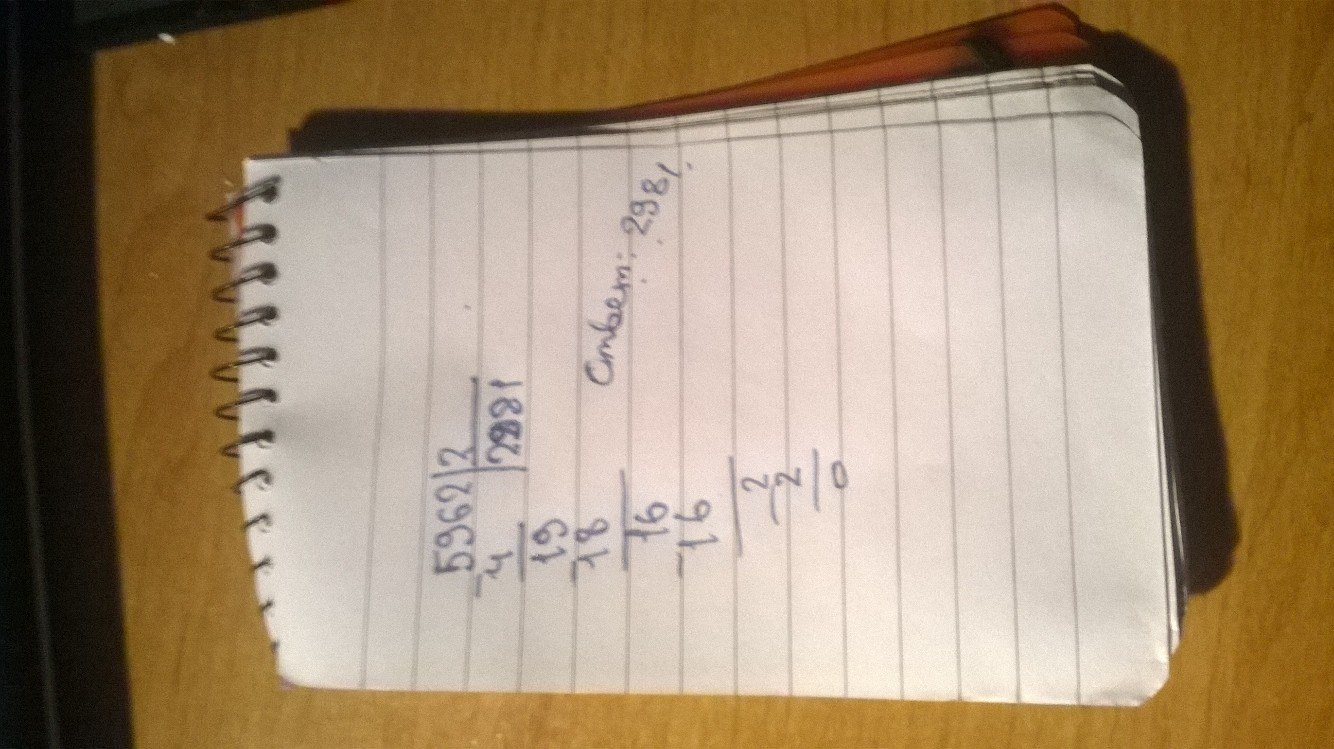 5962|2
-4 |2981
19
-18
16
-16
2
-2
0
Ответ: 2981.